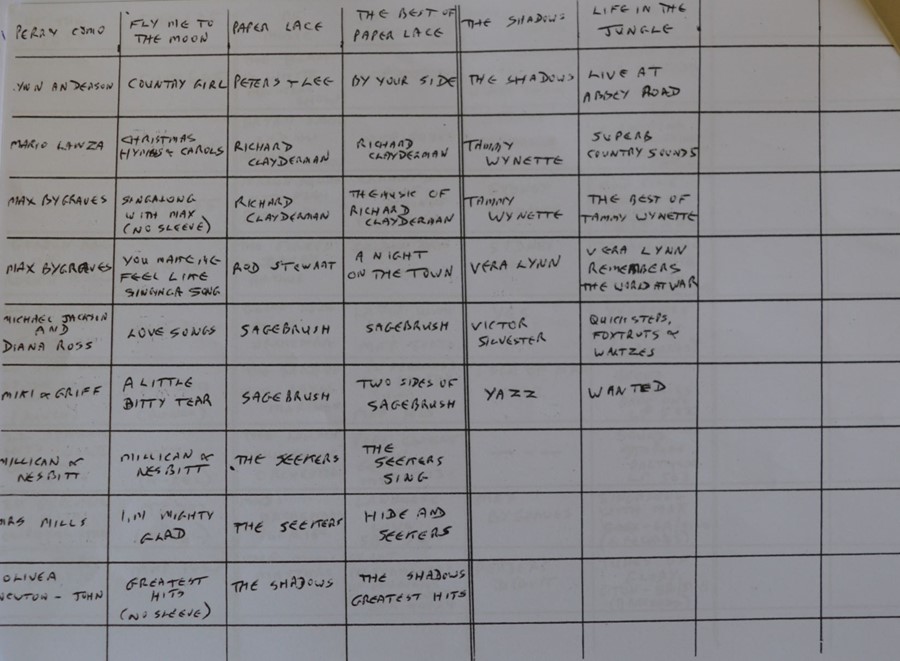 PERRY COMO
FLY ME TO
THE MOON
PAPER LACE
THE BEST OF
PAPER LACE
THE SHADOWS
LIFE IN THE
JUNGLE
LYNN ANDERSON
COUNTRY GIRL
PETERS + LEE
BY YOUR SIDE
THE SHADOWS
LIVE AT
ABBEY ROAD
MARIO LANZA
CHRISTMAS
HYMNS & CAROLS
RICHARD
CLAYDERMAN
RICHARD
CLAYDERMAN
TAMMY
WYNETTE
SUPERB
COUNTRY SOUNDS
MAX BYGRAVES
SINGALONG
WITH MAX
(NO SLEEVE)
RICHARD
CLAYDERMAN
THE MUSIC OF
RICHARD
CLAYDERMAN
TAMMY
WYNETTE
THE BEST OF
TAMMY WYNETTE
MAX BYGRAVES
YOU MAKE ME
FEEL LIKE
SINGING A SONG
ROD STEWART
A NIGHT
ON THE TOWN
VERA LYNN
VERA LYNN
REMEMBERS
THE WORLD AT WAR
MICHAEL JACKSON
AND
DIANA ROSS
LOVE SONGS
SAGEBRUSH
SAGEBRUSH
VICTOR
SILVESTER
QUICKSTEPS,
FOXTROTS &
WALTZES
MIKI & GRIFF
A LITTLE
BITTY TEAR
SAGEBRUSH
TWO SIDES OF
SAGEBRUSH
YAZZ
WANTED
MILLICAN &
NESBITT
MILLICAN &
NESBITT
THE SEEKERS
THE
SEEKERS
SING
MRS MILLS
I,M MIGHTY
GLAD
THE SEEKERS
HIDE AND
SEEKERS
OLIVEA
NEWTON - JOHN
GREATEST
HITS
(NO SLEEVE)
THE SHADOWS
THE SHADOWS
GREATEST HITS